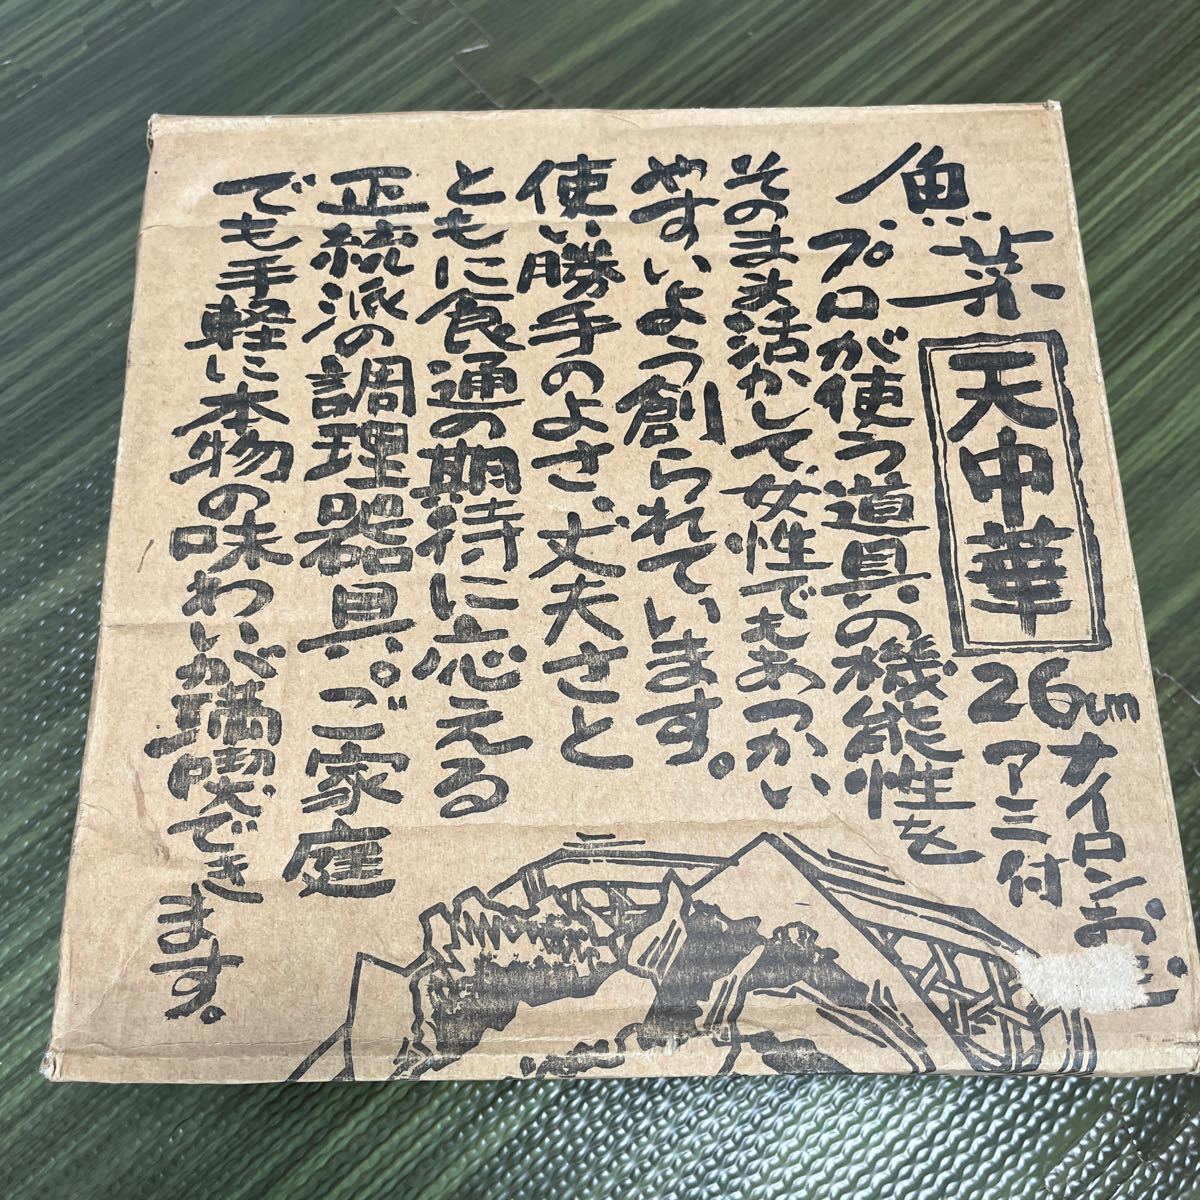 魚菜
天中華
26cm
ナイロン
アミ付
プロが使う道具の機能性を
そのまま活かして、女性でもあつかい
やすいよう創られています。
使い勝手のよさ、丈夫さと
ともに食通の期待に応える
正統派の調理器具。ご家庭
でも手軽に本物の味わいが満喫できます。